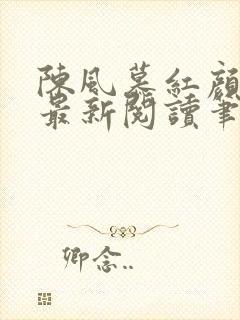 陳風慕紅顏
最新閱讀筆
卿念..